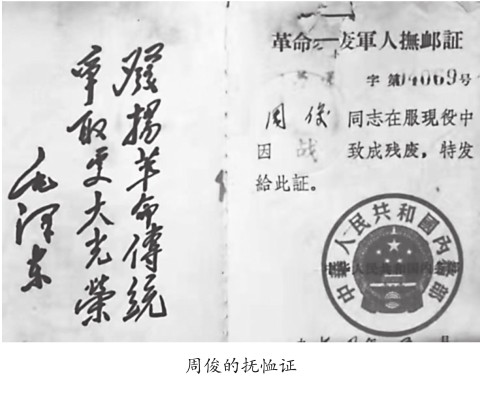 發揚革命傳統
爭取更大光榮
毛澤東
革命废軍人撫卹証
字第04069号
周俊 同志在服現役中
因 战 致成残废，特发
給此証。
中華人民共和國內務部
周俊的抚恤证